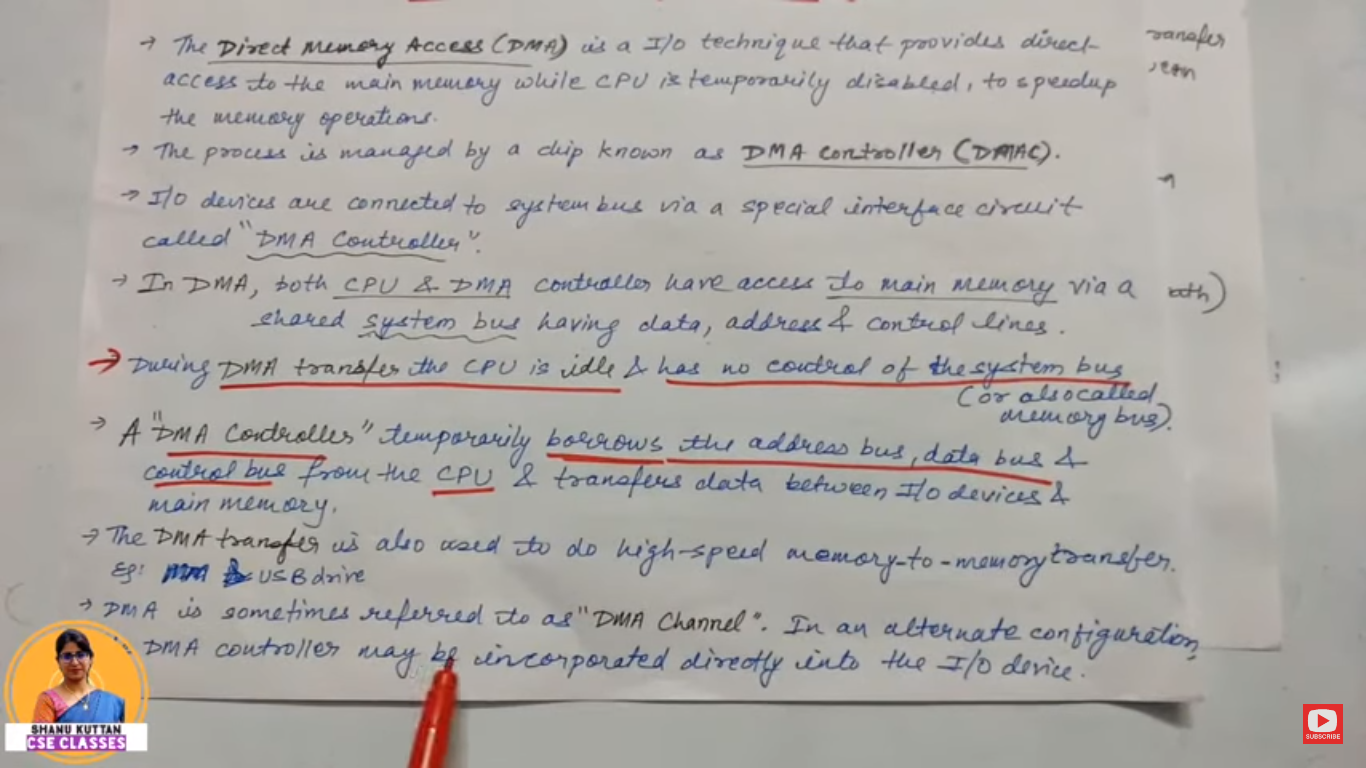 → The Direct Memory Access (DMA) is a I/O technique that provides direct
access to the main memory while CPU is temporarily disabled, to speedup
the memory operations.
→ The process is managed by a chip known as DMA controller (DMAC).
→ I/O devices are connected to system bus via a special interface circuit
called "DMA Controller".
→ In DMA, both CPU & DMA controller have access to main memory via a
shared system bus having data, address & control lines.
→ During DMA transfer the CPU is idle & has no control of the system bus
(or also called
memory bus).
→ A "DMA Controller" temporarily borrows the address bus, data bus &
control bus from the CPU & transfers data between I/O devices &
main memory.
→ The DMA transfer is also used to do high-speed memory-to-memory transfer.
Eg: USB drive
→ DMA is sometimes referred to as "DMA Channel". In an alternate configuration,
DMA controller may be incorporated directly into the I/O device.
ransfer
SHANU KUTTAN
CSE CLASSES
SUBSCRIBE